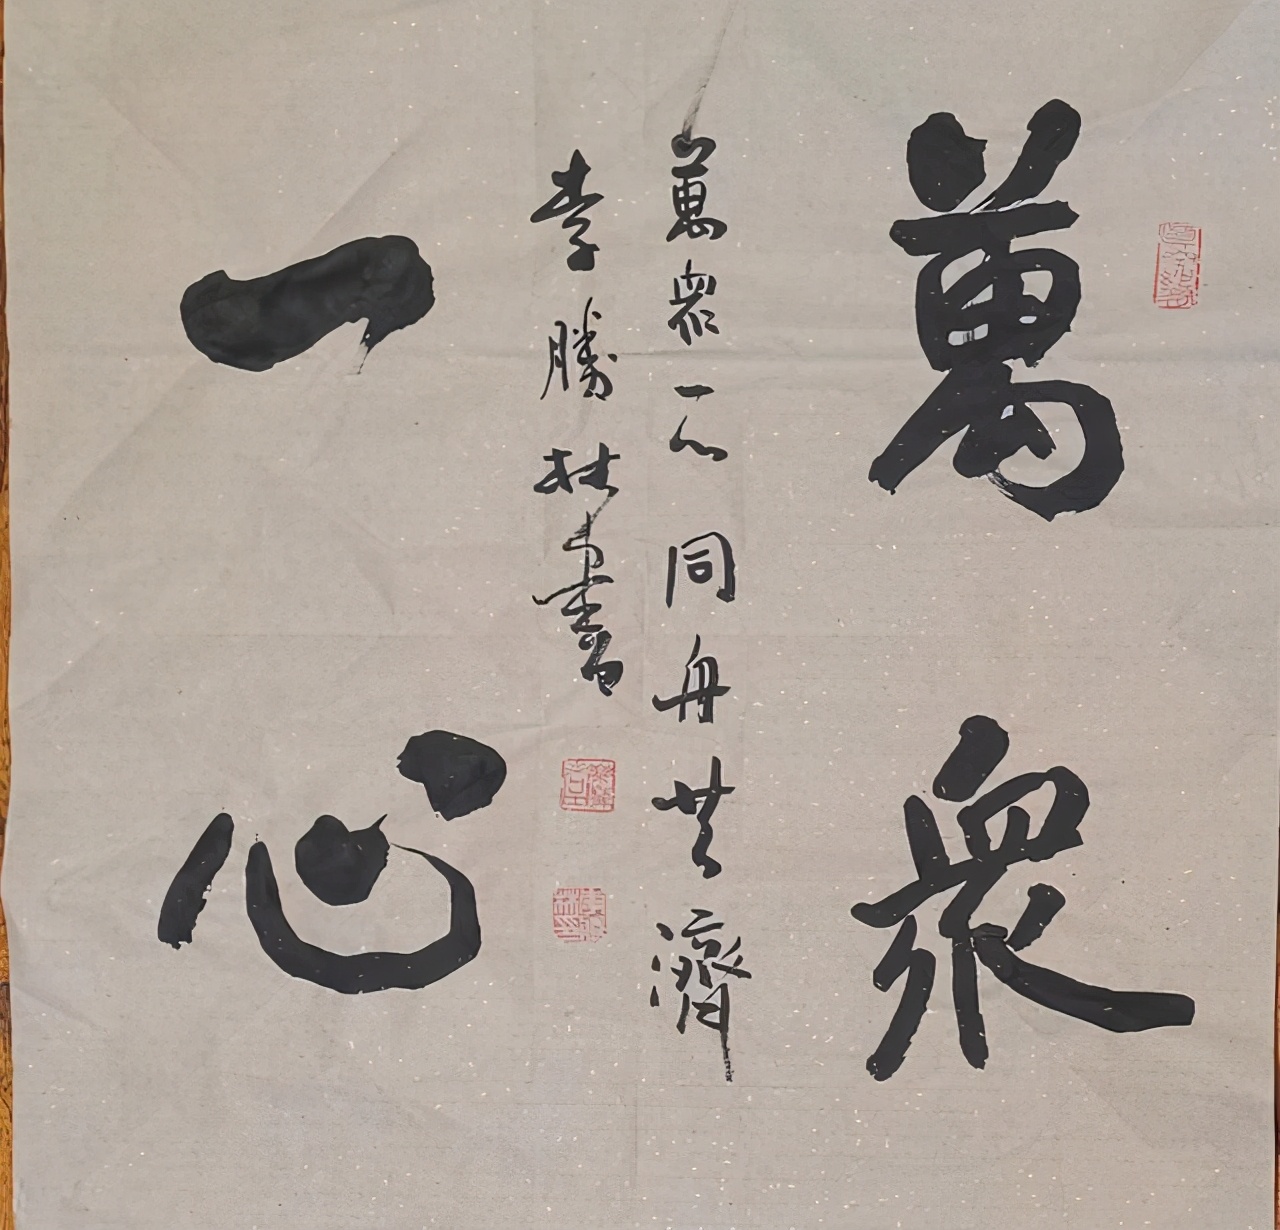 萬眾
一心
萬眾一心同舟共濟
李勝林書